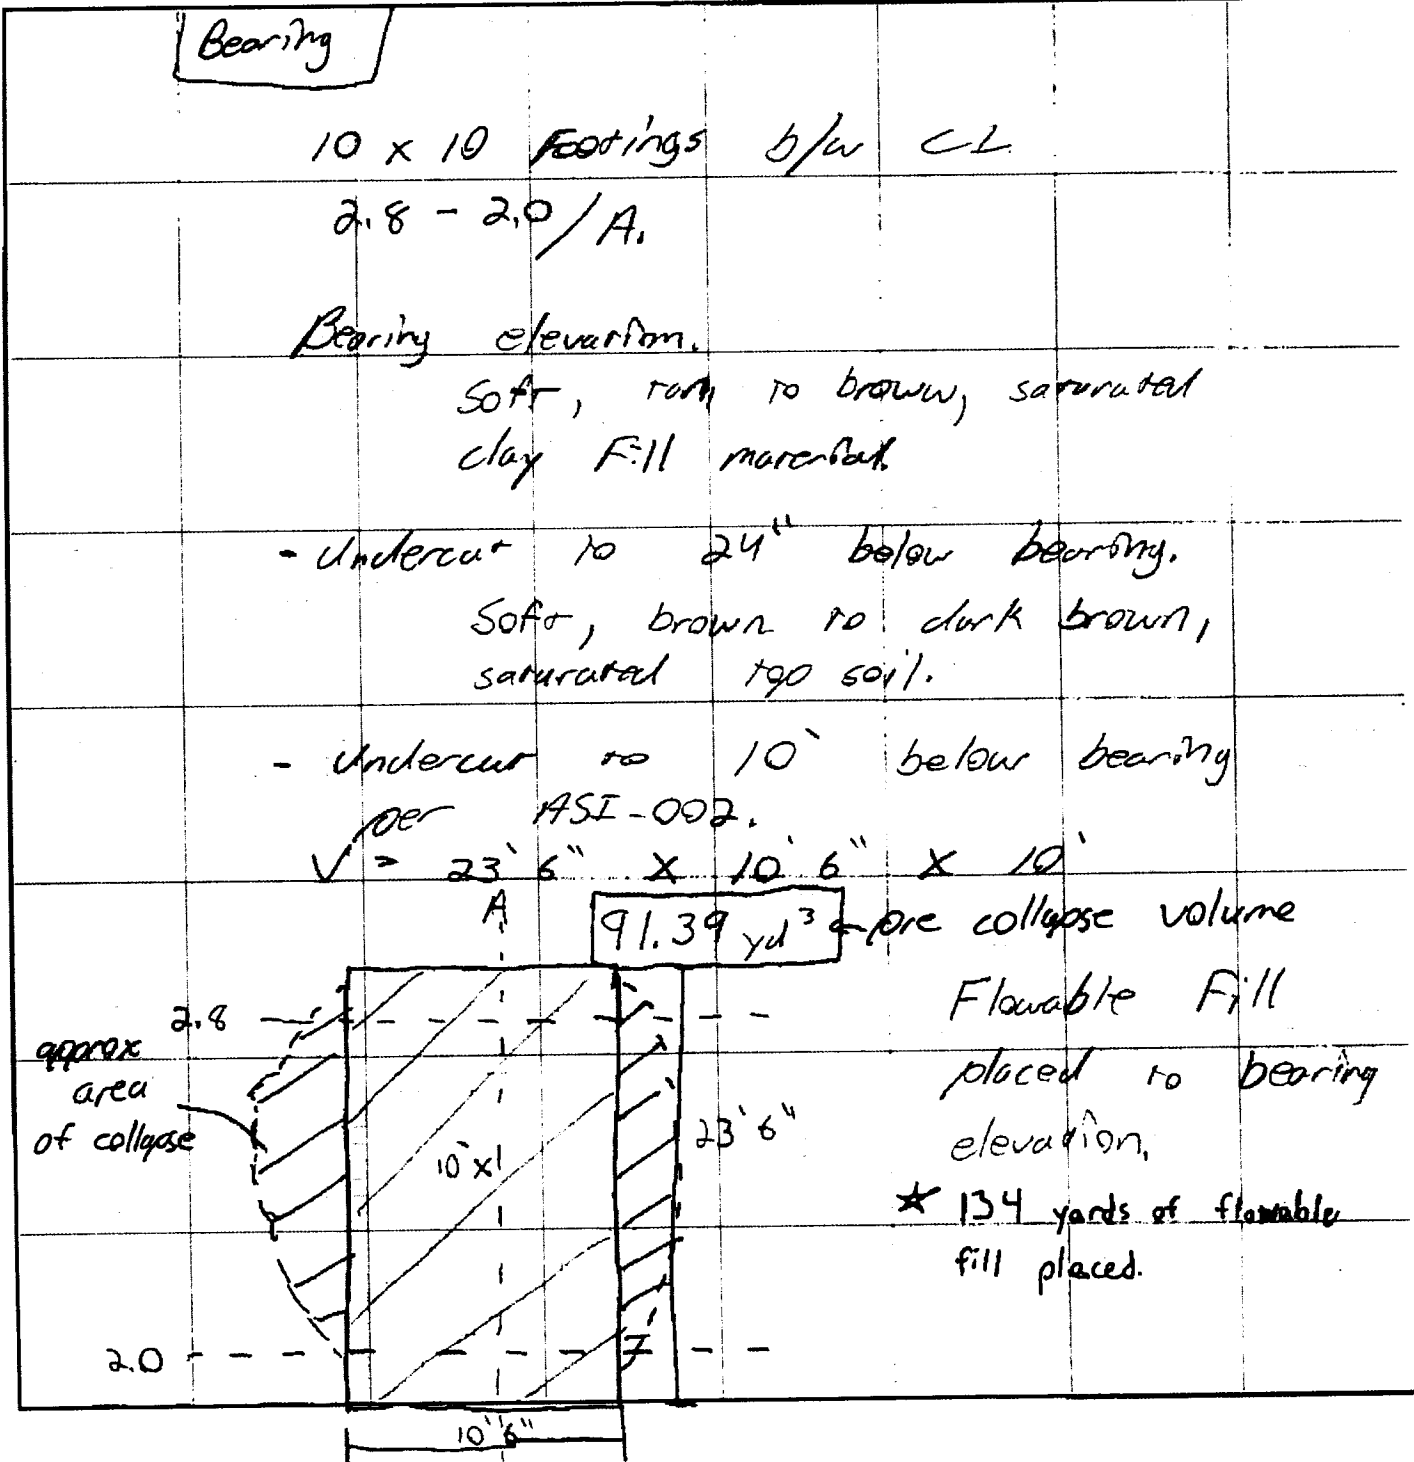 Bearing
10 x 10 Footings b/w CL
2.8 - 2.0/A.
Bearing elevation.
Soft, tan to brown, saturated
clay Fill material.
- Undercut to 24" below bearing.
Soft, brown to dark brown,
saturated top soil.
- Undercut to 10' below bearing
per ASI-002.
V = 23' 6" x 10' 6" x 10'
A
91.39 yd³ ← pre collapse volume
Flowable Fill
placed to bearing
elevation.
* 134 yards of flowable
fill placed.
2.8
approx
area
of collapse
10' x
23' 6"
2.0
10' 6"